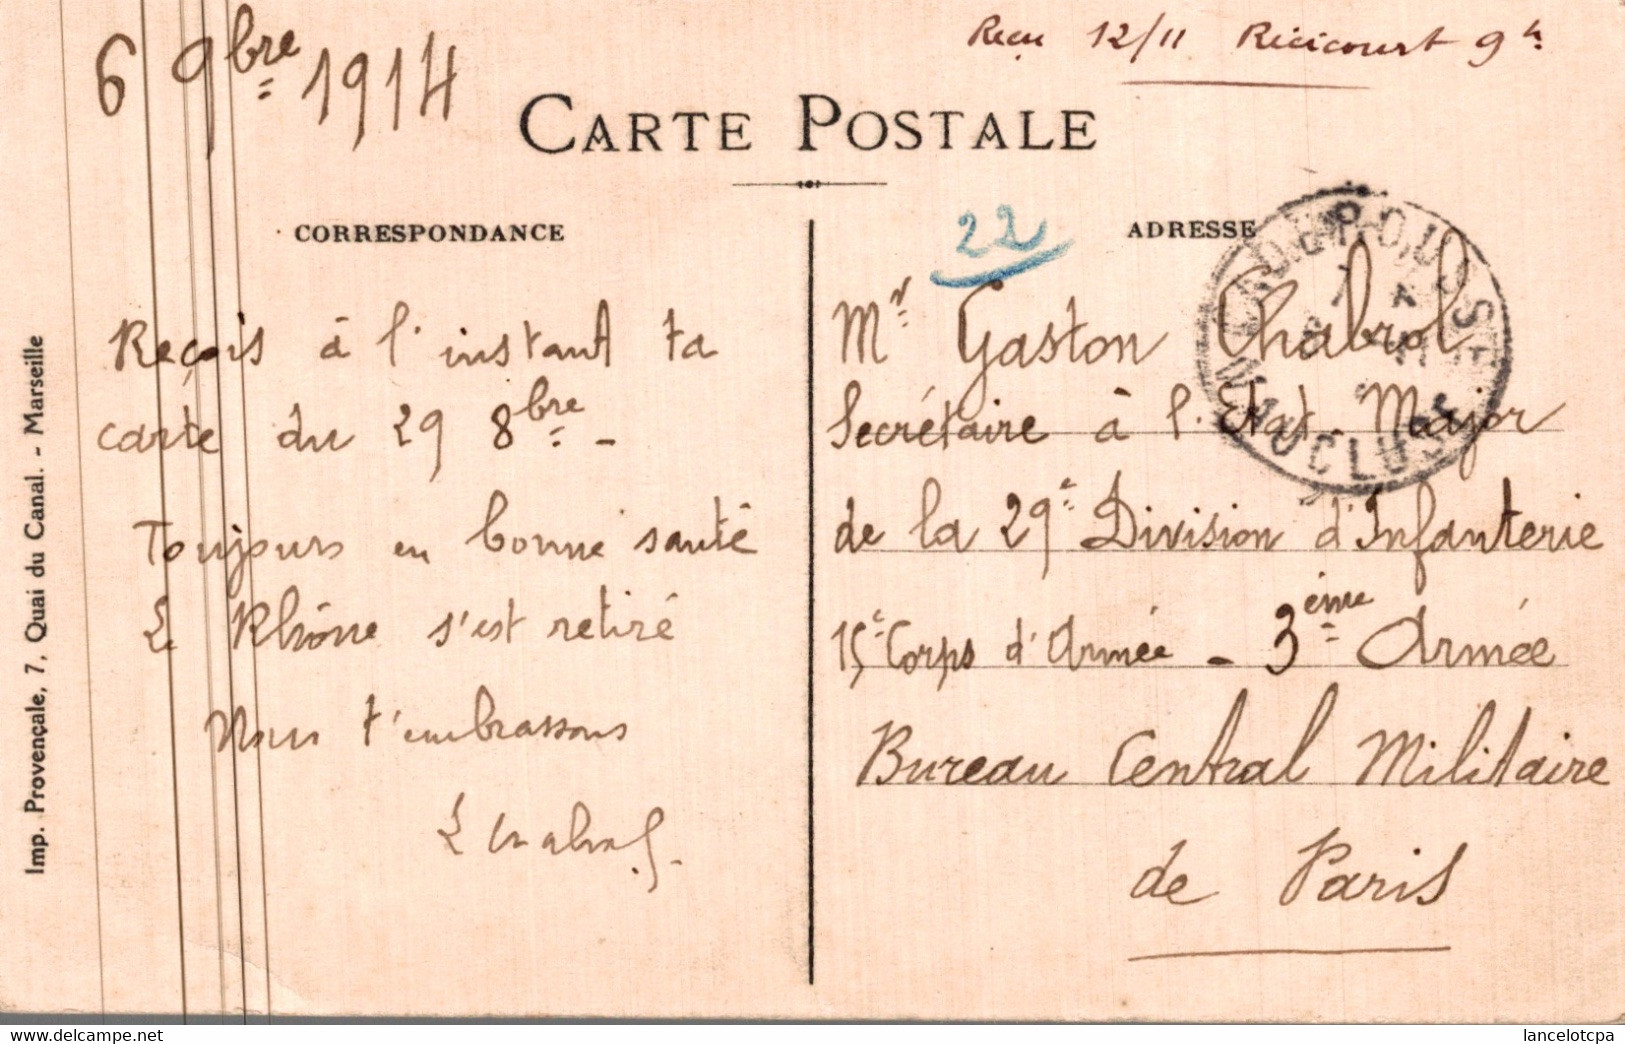 6 9bre 1914
Reçu 12/11 Récicourt 9h
CARTE POSTALE
CORRESPONDANCE
22
ADRESSE
Reçois à l'instant ta
carte du 29 8bre -
Toujours en bonne santé
Le Rhône s'est retiré
Nous t'embrassons
Mr Gaston Chabrol
Secrétaire à l'Etat-Major
de la 29e Division d'Infanterie
15e Corps d'Armée - 3ème Armée
Bureau Central Militaire
de Paris
VAUCLUSE
Imp. Provençale, 7, Quai du Canal. - Marseille
www.delcampe.net
lancelotcpa